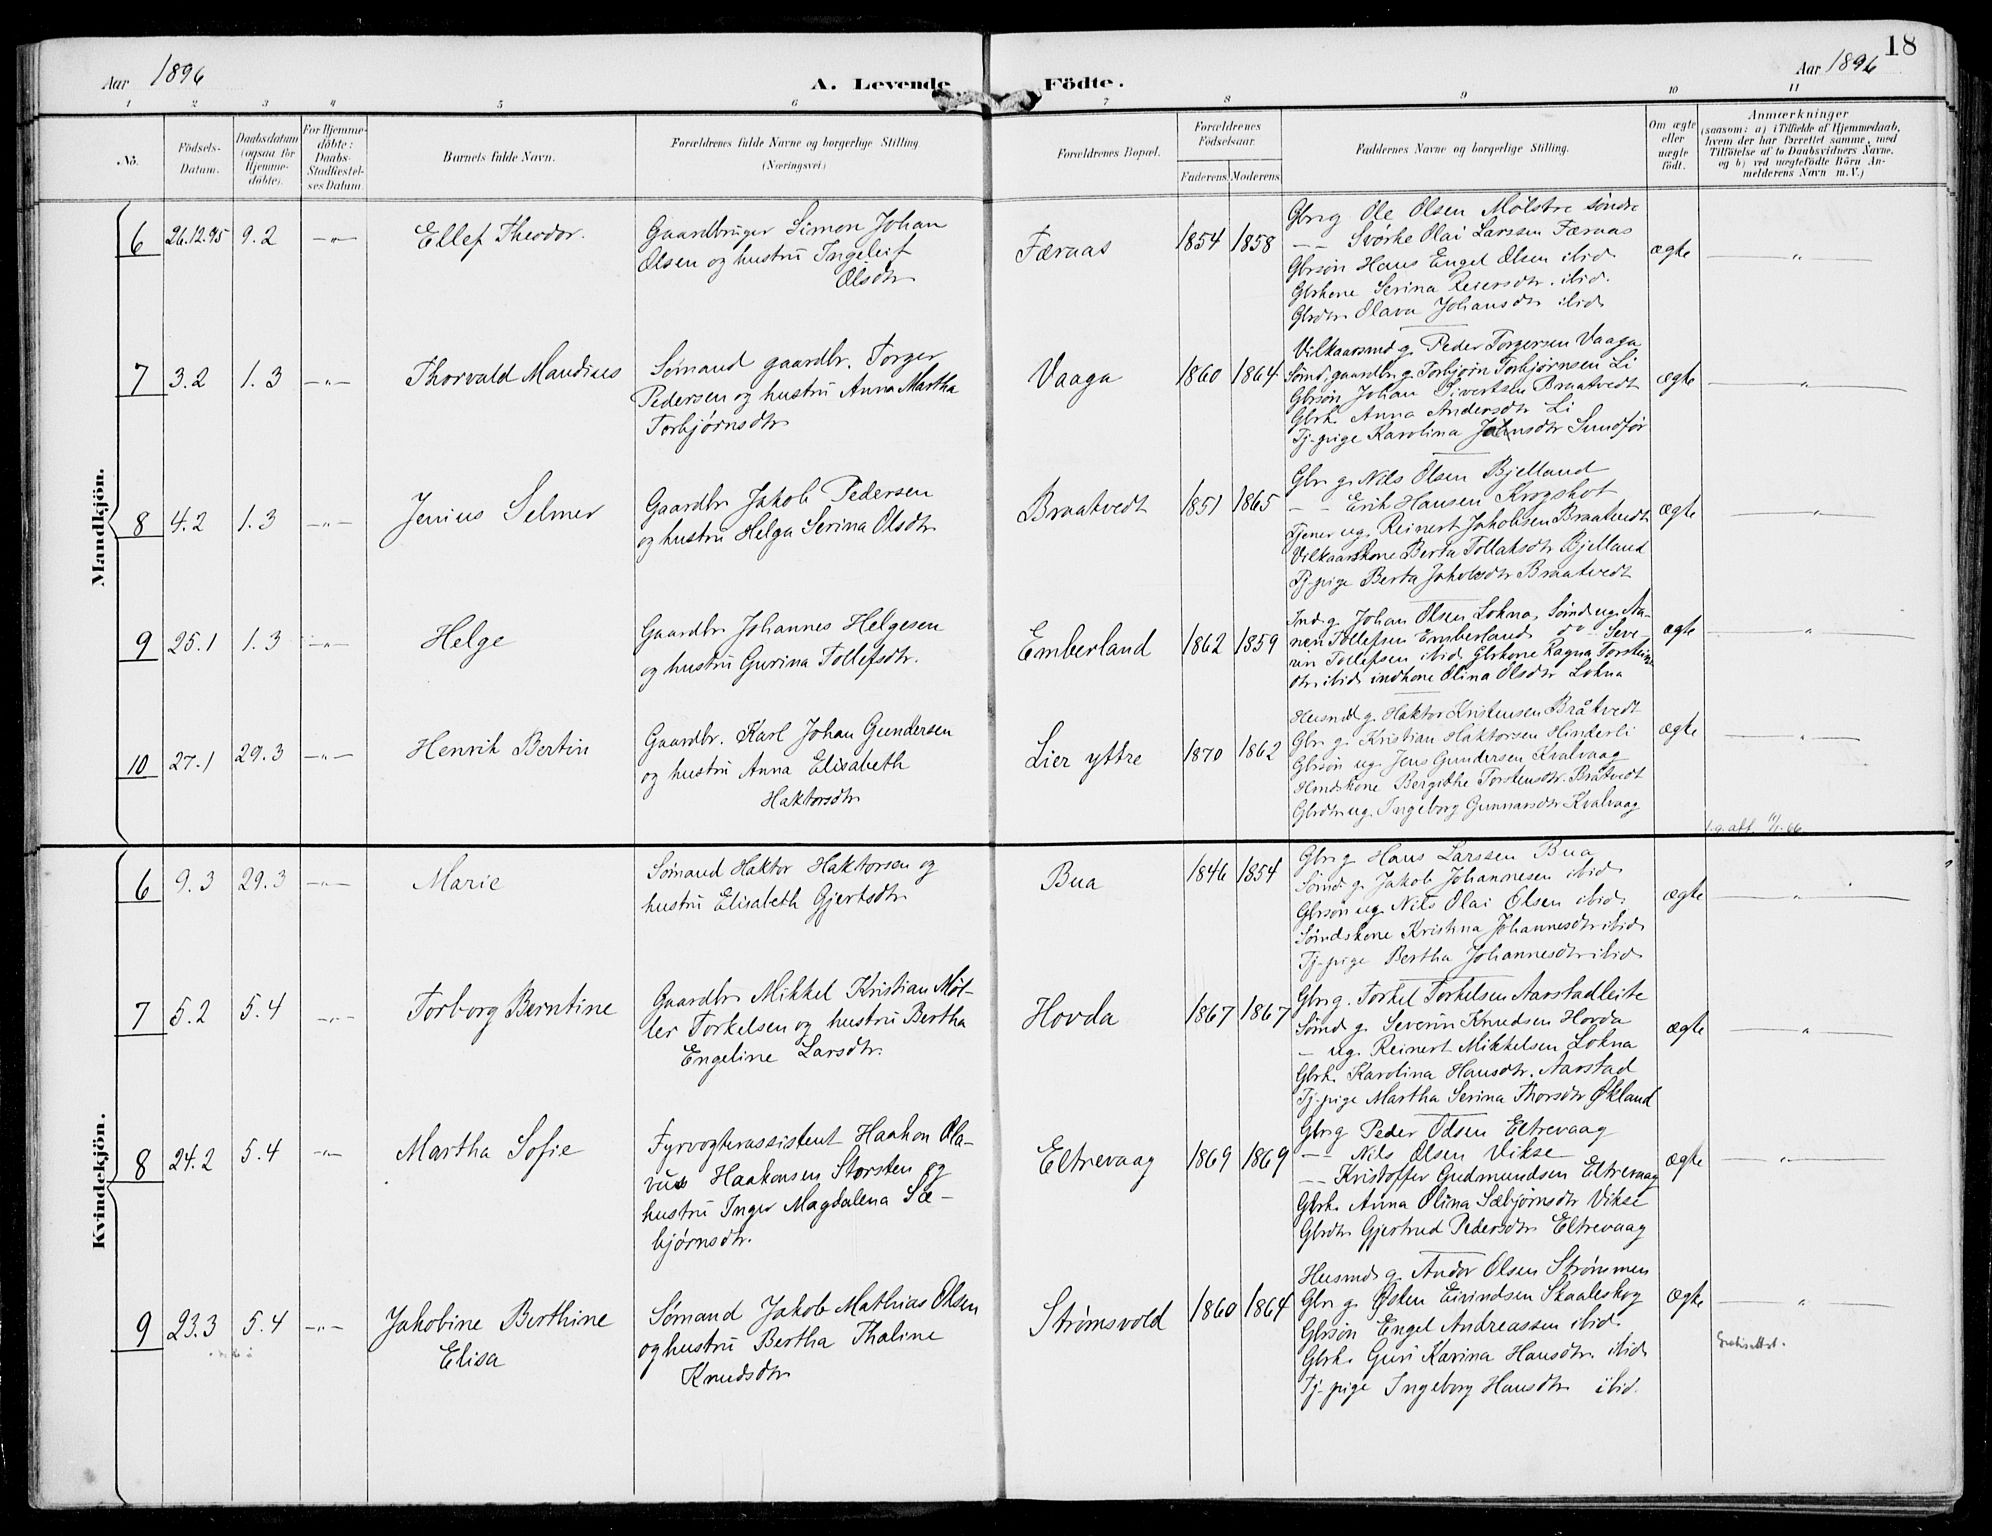 18
Aar 1896
A. Levende Födte.
Aar 1896
1 2 3 4 5 6 7 8 9 10 11
No.
Födsels-
Datum.
Daabsdatum
(ogsaa for
Hjemme-
döbte).
For Hjemme-
döbte:
Daabs-
Stadfæstel-
ses Datum.
Barnets fulde Navn.
Forældrenes fulde Navne og borgerlige Stilling
(Næringsvei)
Forældrenes Bopæl.
Forældrenes
Födselsaar.
Faderens. Moderens.
Faddernes Navne og borgerlige Stilling.
Om ægte
eller
uægte
födt.
Anmærkninger
(saasom: a) i Tilfælde af Hjemmedaab,
hvem der har forrettet samme, med
Tilföielse af to Daabsvidners Navne,
og b) ved uægtefödte Börn An-
melderens Navn m. V.)
Mandkjön.
6 26.12.95 9.2 —"— Ellef Theodor.
Gaardbruger Simon Johan
Olsen og hustru Ingeleif
Olsdtr
Færaas 1854 1858
Gbr g Ole Olsen Mølstre søndre
— — Svørke Olai Larssen Færaas
Gbrsøn Hans Engel Olsen ibid
Gbrkone Serina Reiersdtr. ibid.
Gbrdtr Olava Johansdtr ibid
ægte —"—
7 3.2 1.3 —"— Thorvald Mandius
Sømand gaardbr. Torger
Pedersen og hustru Anna Martha
Torbjørnsdtr
Vaaga 1860 1864
Vilkaarsmd g. Peder Torgersen Vaaga
Sømd. gaardbr g. Torbjørn Torbjørnsen Li
Gbrsøn Johan Sivertsen Braatvedt
Gbrk. Anna Andersdtr Li
Tj-pige Karolina Johnsdtr Sundfør
ægte —"—
8 4.2 1.3 —"— Jenius Selmer
Gaardbr Jakob Pedersen
og hustru Helga Serina Olsdtr
Braatvedt 1851 1865
Gbr g. Nils Olsen Bjelland
— — Erik Hansen Krogshot
Tjener ug. Reinert Jakobsen Braatvedt
Vilkaarskone Berta Tollaksdtr Bjelland
Tj-pige Berta Jakobsdtr Braatvedt
ægte —"—
9 25.1 1.3 —"— Helge
Gaardbr Johannes Helgesen
og hustru Gurina Tollefsdtr.
Emberland 1862 1859
Ind g. Johan Olsen Lokna, Sømd ug. Aa-
nen Tollefsen Emberland, do Seve-
rin Tollefsen ibid Gbrkone Ragna Torsteins-
dtr ibid indkone Olina Olsdtr Lokna
ægte —"—
10 27.1 29.3 —"— Henrik Bertin
Gaardbr. Karl Johan Gundersen
og hustru Anna Elisabeth
Haktorsdtr
Lier yttre 1870 1862
Husmd g. Haktor Kristensen Bråtvedt
Gbr g. Kristian Haktorsen Hinderli
Gbrsøn ug. Jens Gundersen Kvalvaag
Hmdskone Bergithe Torstensdtr. Bråtvedt
Gbrdtr ug. Ingeborg Gunnarsdtr Kvalvaag
ægte —"—
Kvindekjön.
6 9.3 29.3 —"— Marie
Sømand Haktor Haktorsen og
hustru Elisabeth Gjertsdtr
Bua 1846 1854
Gbr g Hans Larssen Bua
Sømd g. Jakob Johannesen ibid
Gbrsøn ug. Nils Olai Olsen ibid
Sømdskone Kristina Johannesdtr ibid
Tj-pige Bertha Johannesdtr ibid
ægte —"—
7 5.2 5.4 —"— Torborg Berntine
Gaardbr Mikkel Kristian Møl-
ler Torkelsen og hustru Bertha
Engeline Larsdtr.
Hovda 1867 1867
Gbr g. Torkel Torkelsen Aarstadleite
Sømd g. Severin Knudsen Hovda
— ug. Reinert Mikkelsen Lokna
Gbrk. Karolina Hansdtr. Aarstad
Tj-pige Martha Serina Thorsdtr Økland
ægte —"—
8 24.2 5.4 —"— Martha Sofie
Fyrvogterassistent Haakon Ola-
vus Haakonsen Storsten og
hustru Inger Magdalena Sæ-
bjørnsdtr.
Eltrevaag 1869 1869
Gbr g Peder Odsen Eltrevaag
— Nils Olsen Vikse
— — Kristoffer Gudmundsen Eltrevaag
Gbrk. Anna Olina Sæbjørnsdtr Vikse
Gbrdtr Gjertrud Pedersdtr Eltrevaag
ægte —"—
9 23.3 5.4 —"— Jakobine Berthine
Elisa
Sømand Jakob Mathias Olsen
og hustru Bertha Thaline
Knudsdtr
Strømsvold 1860 1864
Husmd g. Andor Olsen Strømmen
Gbr g. Østen Eivindsen Skaaleskog
Gbrsøn Engel Andreassen ibid.
Gbrk. Guri Karina Hansdtr. ibid
Tj-pige Ingeborg Hansdtr ibid.
ægte —"—